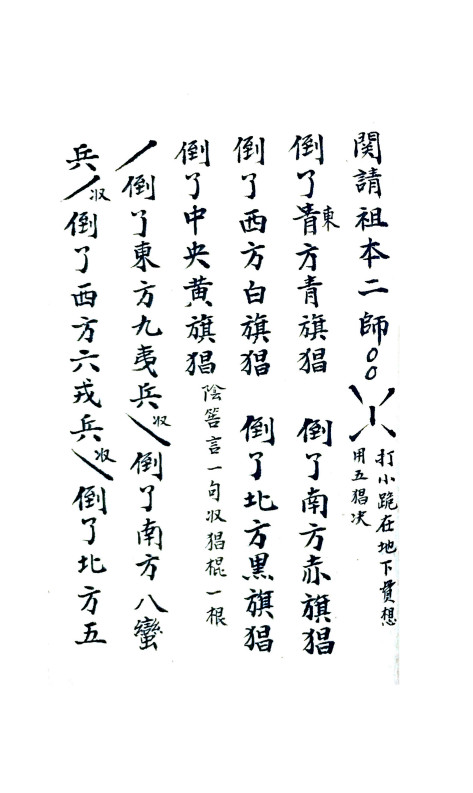 関請祖本二師
打小跪在地下貫想
用五猖决
倒了青東方青旗猖 倒了南方赤旗猖
倒了西方白旗猖 倒了北方黒旗猖
倒了中央黄旗猖 陰筶言一句収猖棍一根
倒了東方九夷兵 収 倒了南方八蠻
兵 収 倒了西方六戎兵 収 倒了北方五